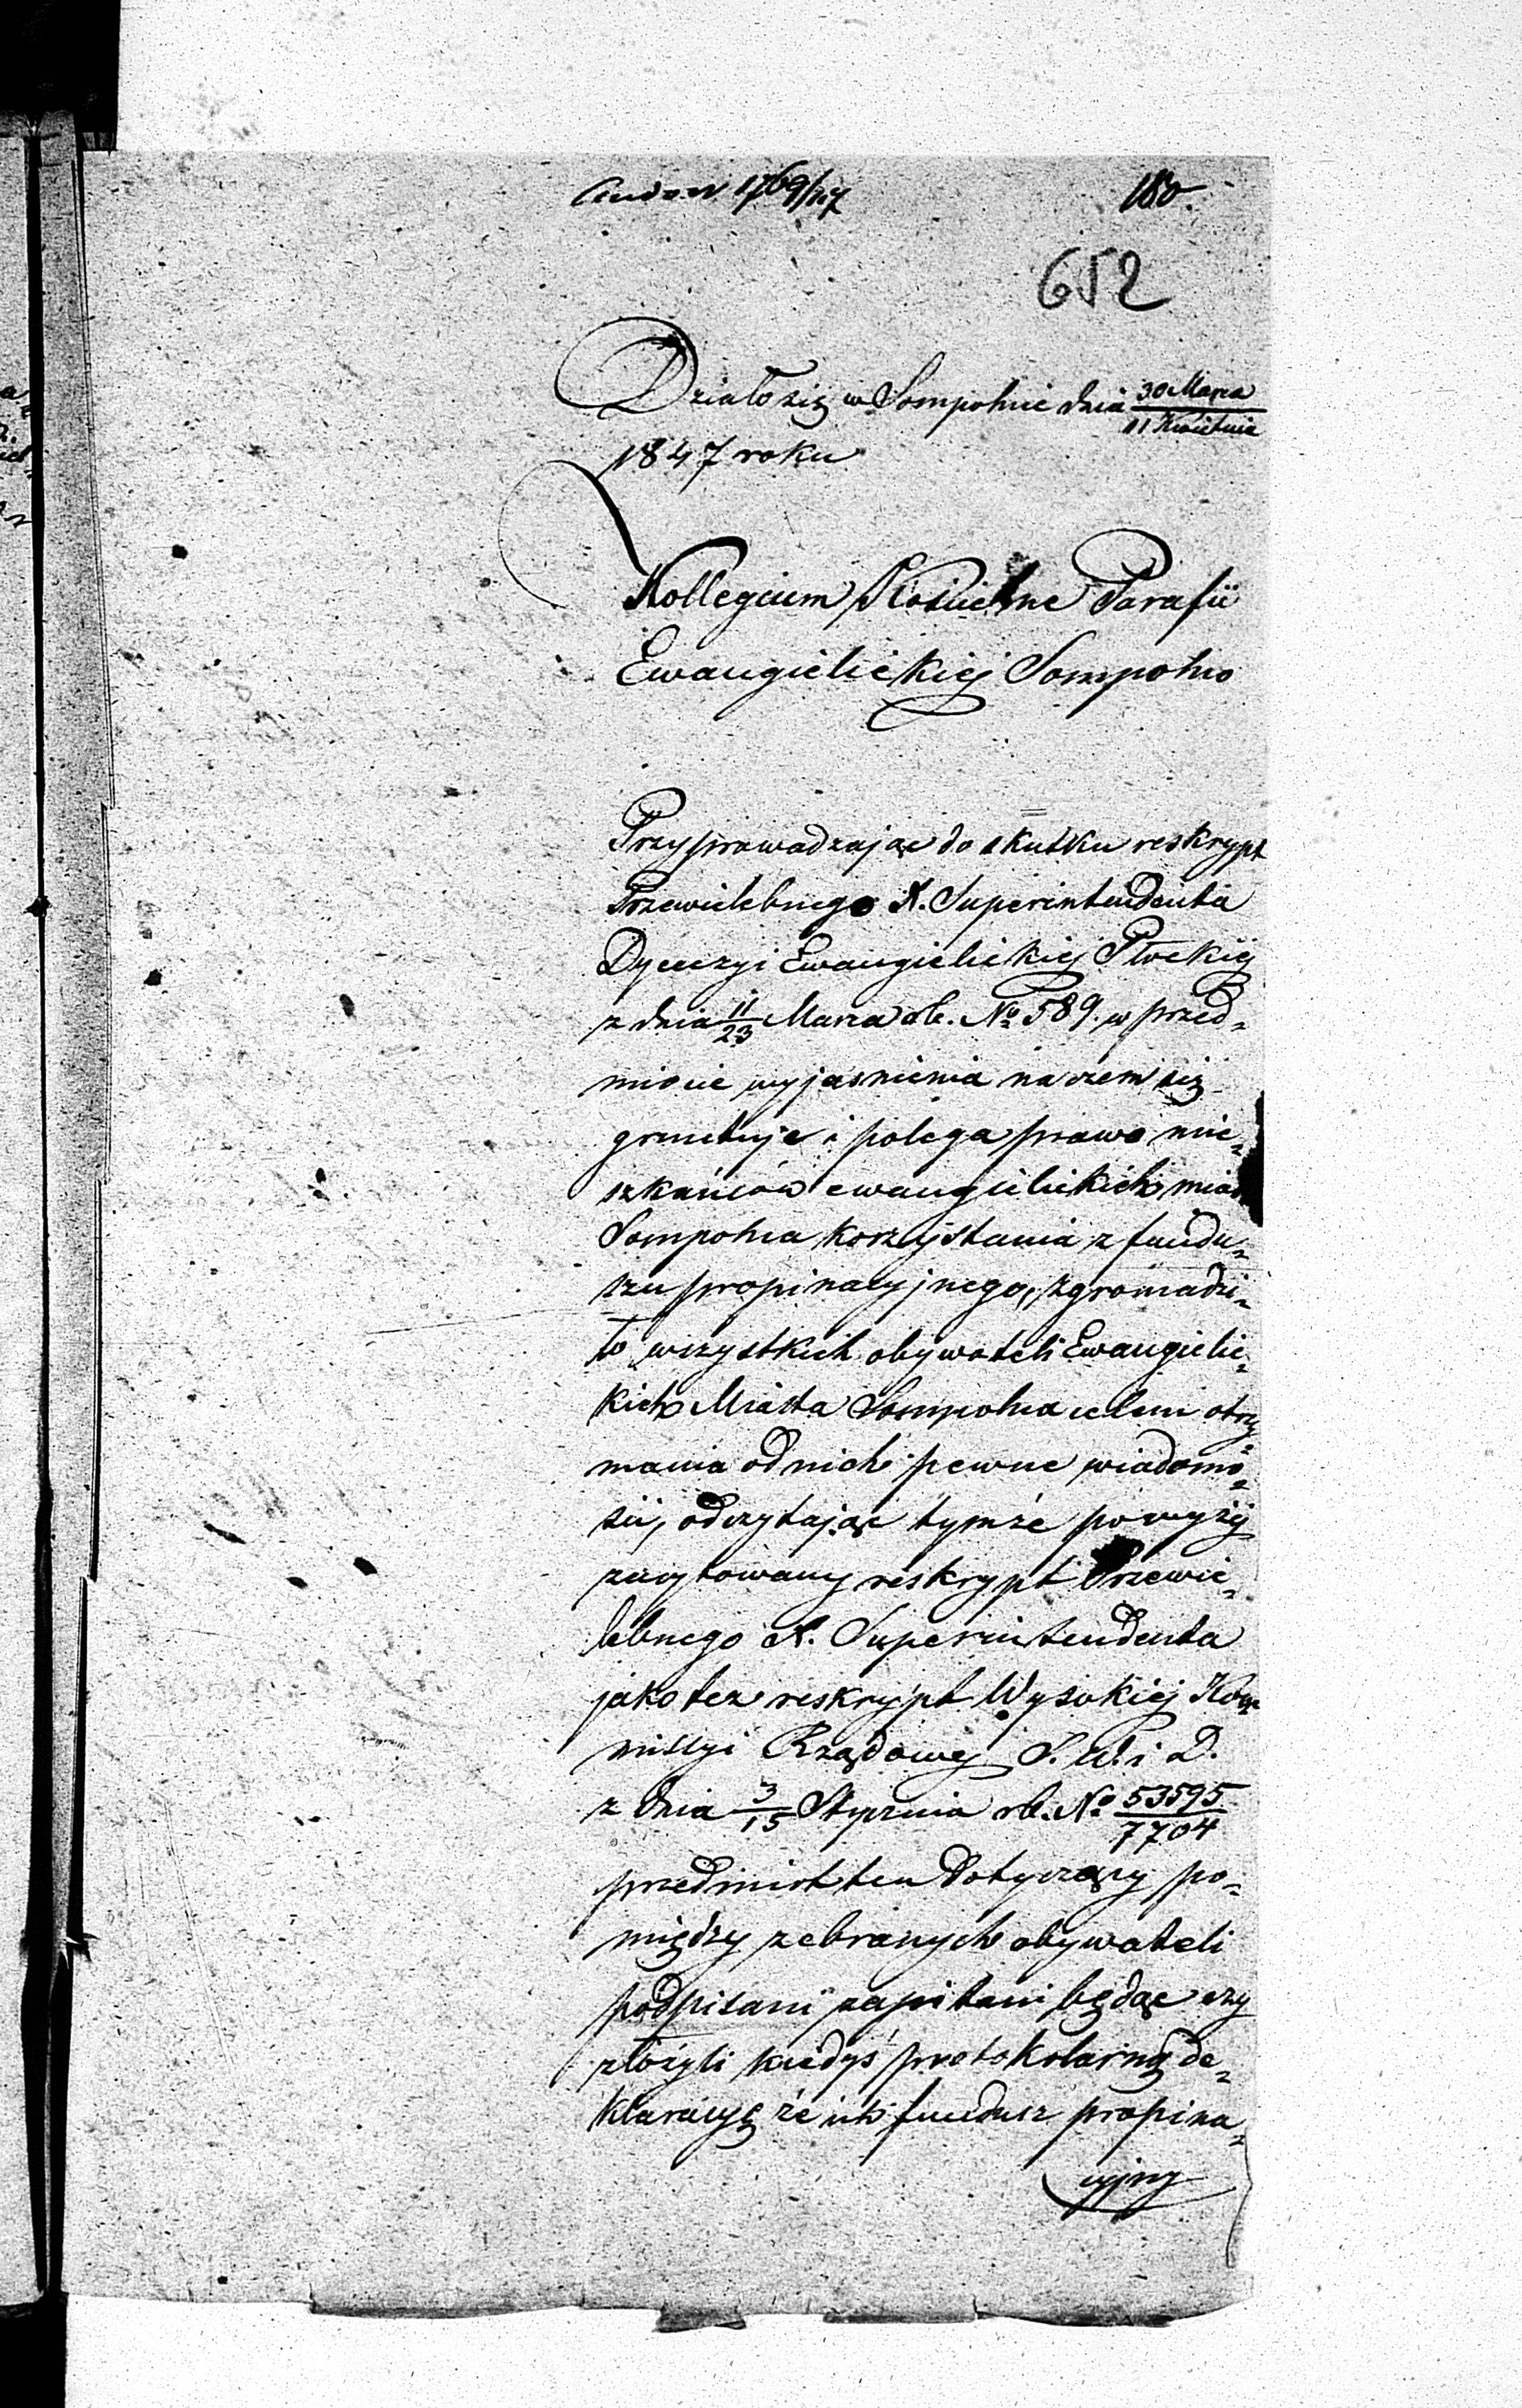 ad N 1769/47 180.
652
Działo się w Sompolnie dnia 30 Marca / 11 Kwietnia
1847 roku
Kollegium Kościelne Parafii
Ewangielickiej Sompolno
Przyprowadzając do skutku reskrypt
Przewielebnego X. Superintendenta
Dyecezyi Ewangielickiej Płockiej
z dnia 11/23 Marca rb. No 589. w przed-
miocie wyjasnienia na czem się
gruntuje i polega prawo mie-
szkańców ewangielickich mias
Sompolna korzystania z fundu-
szu propinacyjnego, zgromadzi-
ło wszystkich obywateli Ewangielic-
kich Miasta Sompolna celem otrzy-
mania od nich pewne wiadomo-
ści, odczytając tymże powyżej
zacytowany reskrypt Przewie-
lebnego X. Superintendenta
jako tez reskrypt Wysokiej Kom-
missyi Rządowej S. W. i D.
z dnia 3/15 Stycznia rb. No 53595/7704
przedmiot ten dotyczący po-
między zebranych obywateli
podpisani zapitani będąc czy
złożyli kiedyś protokolarną de-
klaracyę że ich fundusz propina-
cyjny